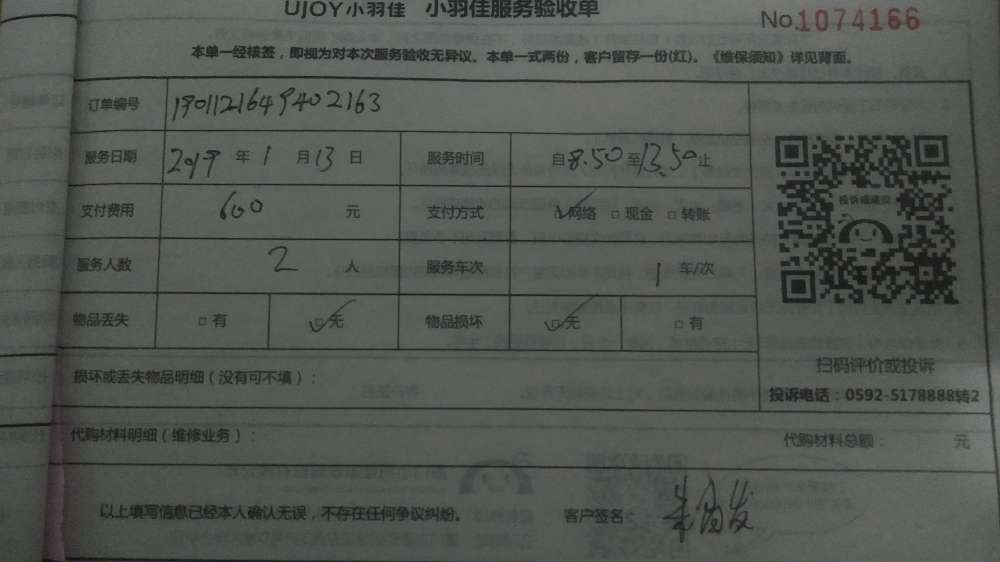 UJOY小羽佳 小羽佳服务验收单
No.1074166
本单一经核签，即视为对本次服务验收无异议。本单一式两份，客户留存一份(红)。《维保须知》详见背面。
订单编号 1901121649402163
服务日期 2019 年 1 月 13 日 服务时间 自 8.50 至 13.50 止
支付费用 600 元 支付方式 ☑网络 □现金 □转账
服务人数 2 人 服务车次 1 车/次
物品丢失 □有 ☑无 物品损坏 ☑无 □有
扫码评价或投诉
投诉电话：0592-5178888转2
损坏或丢失物品明细（没有可不填）：
代购材料明细（维修业务）： 代购材料总额： 元
以上填写信息已经本人确认无误，不存在任何争议纠纷。 客户签名：